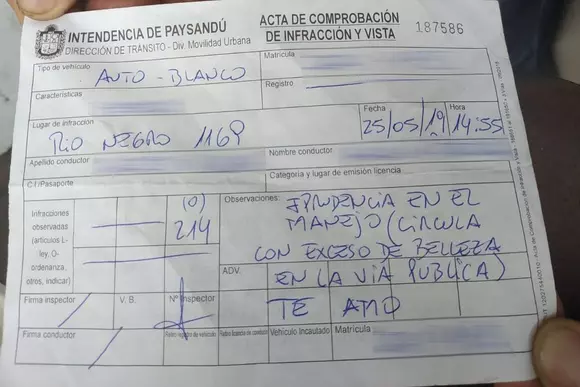 INTENDENCIA DE PAYSANDÚ
DIRECCIÓN DE TRÁNSITO - Div. Movilidad Urbana
ACTA DE COMPROBACIÓN
DE INFRACCIÓN Y VISTA
187586
Tipo de vehículo
AUTO - BLANCO
Matrícula
Características
Registro
Lugar de infracción
RIO NEGRO 1169
Fecha
25/05/19
Hora
14:55
Apellido conductor
Nombre conductor
C.I/Pasaporte
Categoría y lugar de emisión licencia
Infracciones
observadas
(artículos L-
ley, O-
ordenanza,
otros, indicar)
(O)
214
Observaciones:
IPRUDENCIA EN EL
MANEJO (CIRCULA
CON EXCESO DE BELLEZA
ADV.
EN LA VIA PUBLICA)
TE AMO
Firma inspector
V. B.
Nº Inspector
Firma conductor
Vehículo Incautado
Matrícula